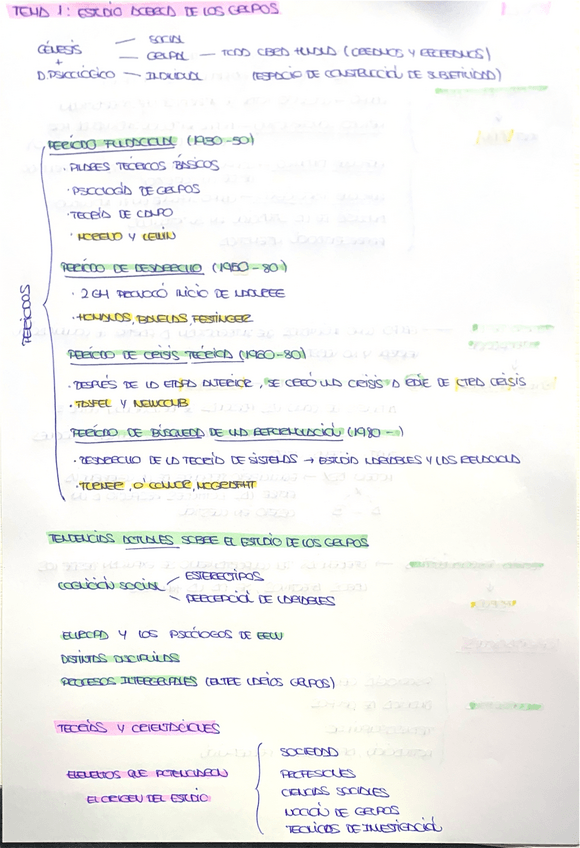 TEMA 1: ESTUDIO ACERCA DE LOS GRUPOS
GÉNESIS — SOCIAL
+ — GRUPAL — TODO (CREAMOS Y RECREAMOS)
D. PSICOLÓGICO — INDIVIDUAL (ESPACIO DE CONSTRUCCIÓN DE SUBJETIVIDAD)
PERÍODOS
PERÍODO FUNDACIONAL (1930-50)
· PILARES TEÓRICOS BÁSICOS
· PSICOLOGÍA DE GRUPOS
· TEORÍA DE CAMPO
· MORENO Y LEWIN
PERÍODO DE DESARROLLO (1950-80)
· 2GM PROVOCÓ INICIO DE
· HOMANS, BAVELAS, FESTINGER
PERÍODO DE CRISIS TEÓRICA (1960-80)
· DESPUÉS DE LA ETAPA ANTERIOR, SE CREÓ UNA CRISIS A RAÍZ DE OTRA CRISIS
· TAJFEL Y NEWCOMB
PERÍODO DE BÚSQUEDA DE UNA REFORMULACIÓN (1980 - )
· DESARROLLO DE LA TEORÍA DE SISTEMAS → ESTUDIA VARIABLES Y LAS RELACIONA
· TURNER, O'CONNOR, MCGRATH
TENDENCIAS ACTUALES SOBRE EL ESTUDIO DE LOS GRUPOS
COGNICIÓN SOCIAL — ESTEREOTIPOS
— PERCEPCIÓN DE VARIABLES
EUROPA Y LOS PSICÓLOGOS DE EEUU
DISTINTAS DISCIPLINAS
PROCESOS INTERGRUPALES (ENTRE VARIOS GRUPOS)
TEORÍAS Y ORIENTACIONES
ELEMENTOS QUE POTENCIARON
EL ORIGEN DEL ESTUDIO
SOCIEDAD
PROFESIONES
CIENCIAS SOCIALES
NOCIÓN DE GRUPOS
TECNICAS DE INVESTIGACIÓN